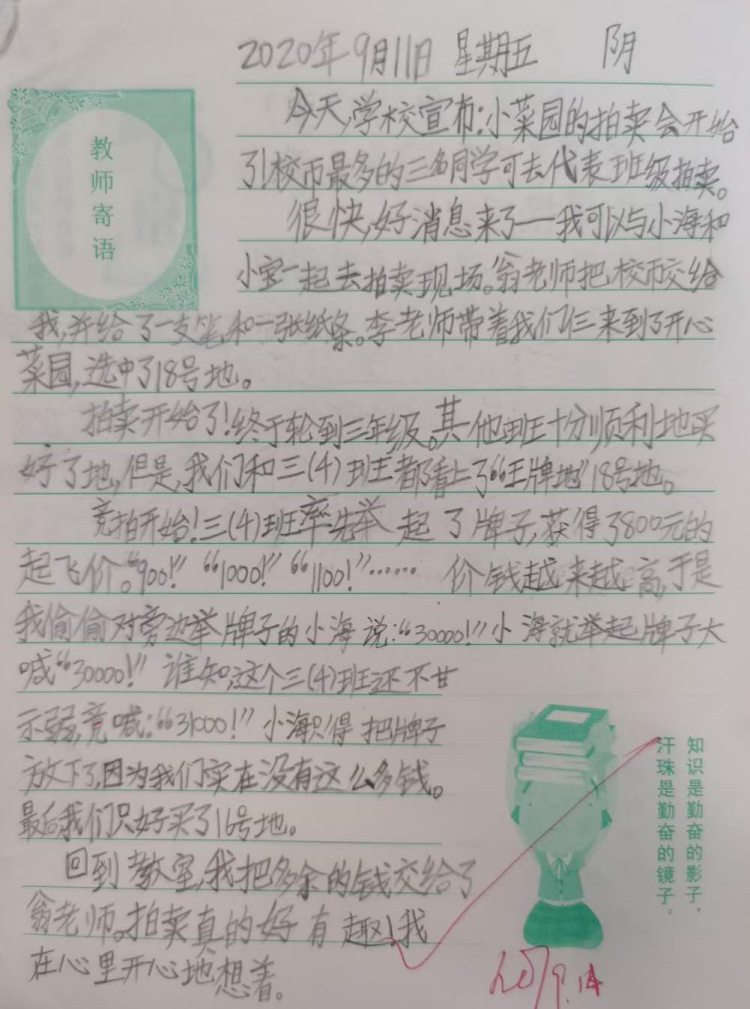 2020年9月11日 星期五 阴
教师寄语
今天,学校宣布:小菜园的拍卖会开始
了!校币最多的三名同学可去代表班级拍卖。
很快,好消息来了——我可以与小海和
小宝一起去拍卖现场。翁老师把校币交给
我,并给了一支笔和一张纸条。李老师带着我们仨来到了开心
菜园,选中了18号地。
拍卖开始了!终于轮到三年级。其他班十分顺利地买
好了地,但是,我们和三(4)班都看上了“王牌地”18号地。
竞拍开始!三(4)班率先举起了牌子,获得了800元的
起飞价。“900!”“1000!”“1100!”……价钱越来越高,于是
我偷偷对旁边举牌子的小海说:“30000!”小海就举起牌子大
喊“30000!”谁知,这个三(4)班还不甘
示弱,竟喊:“31000!”小海只得把牌子
放下了,因为我们实在没有这么多钱。
最后我们只好买了16号地。
回到教室,我把多余的钱交给了
翁老师。拍卖真的好有趣!我
在心里开心地想着。
知识是勤奋的影子,
汗珠是勤奋的镜子。
9.14